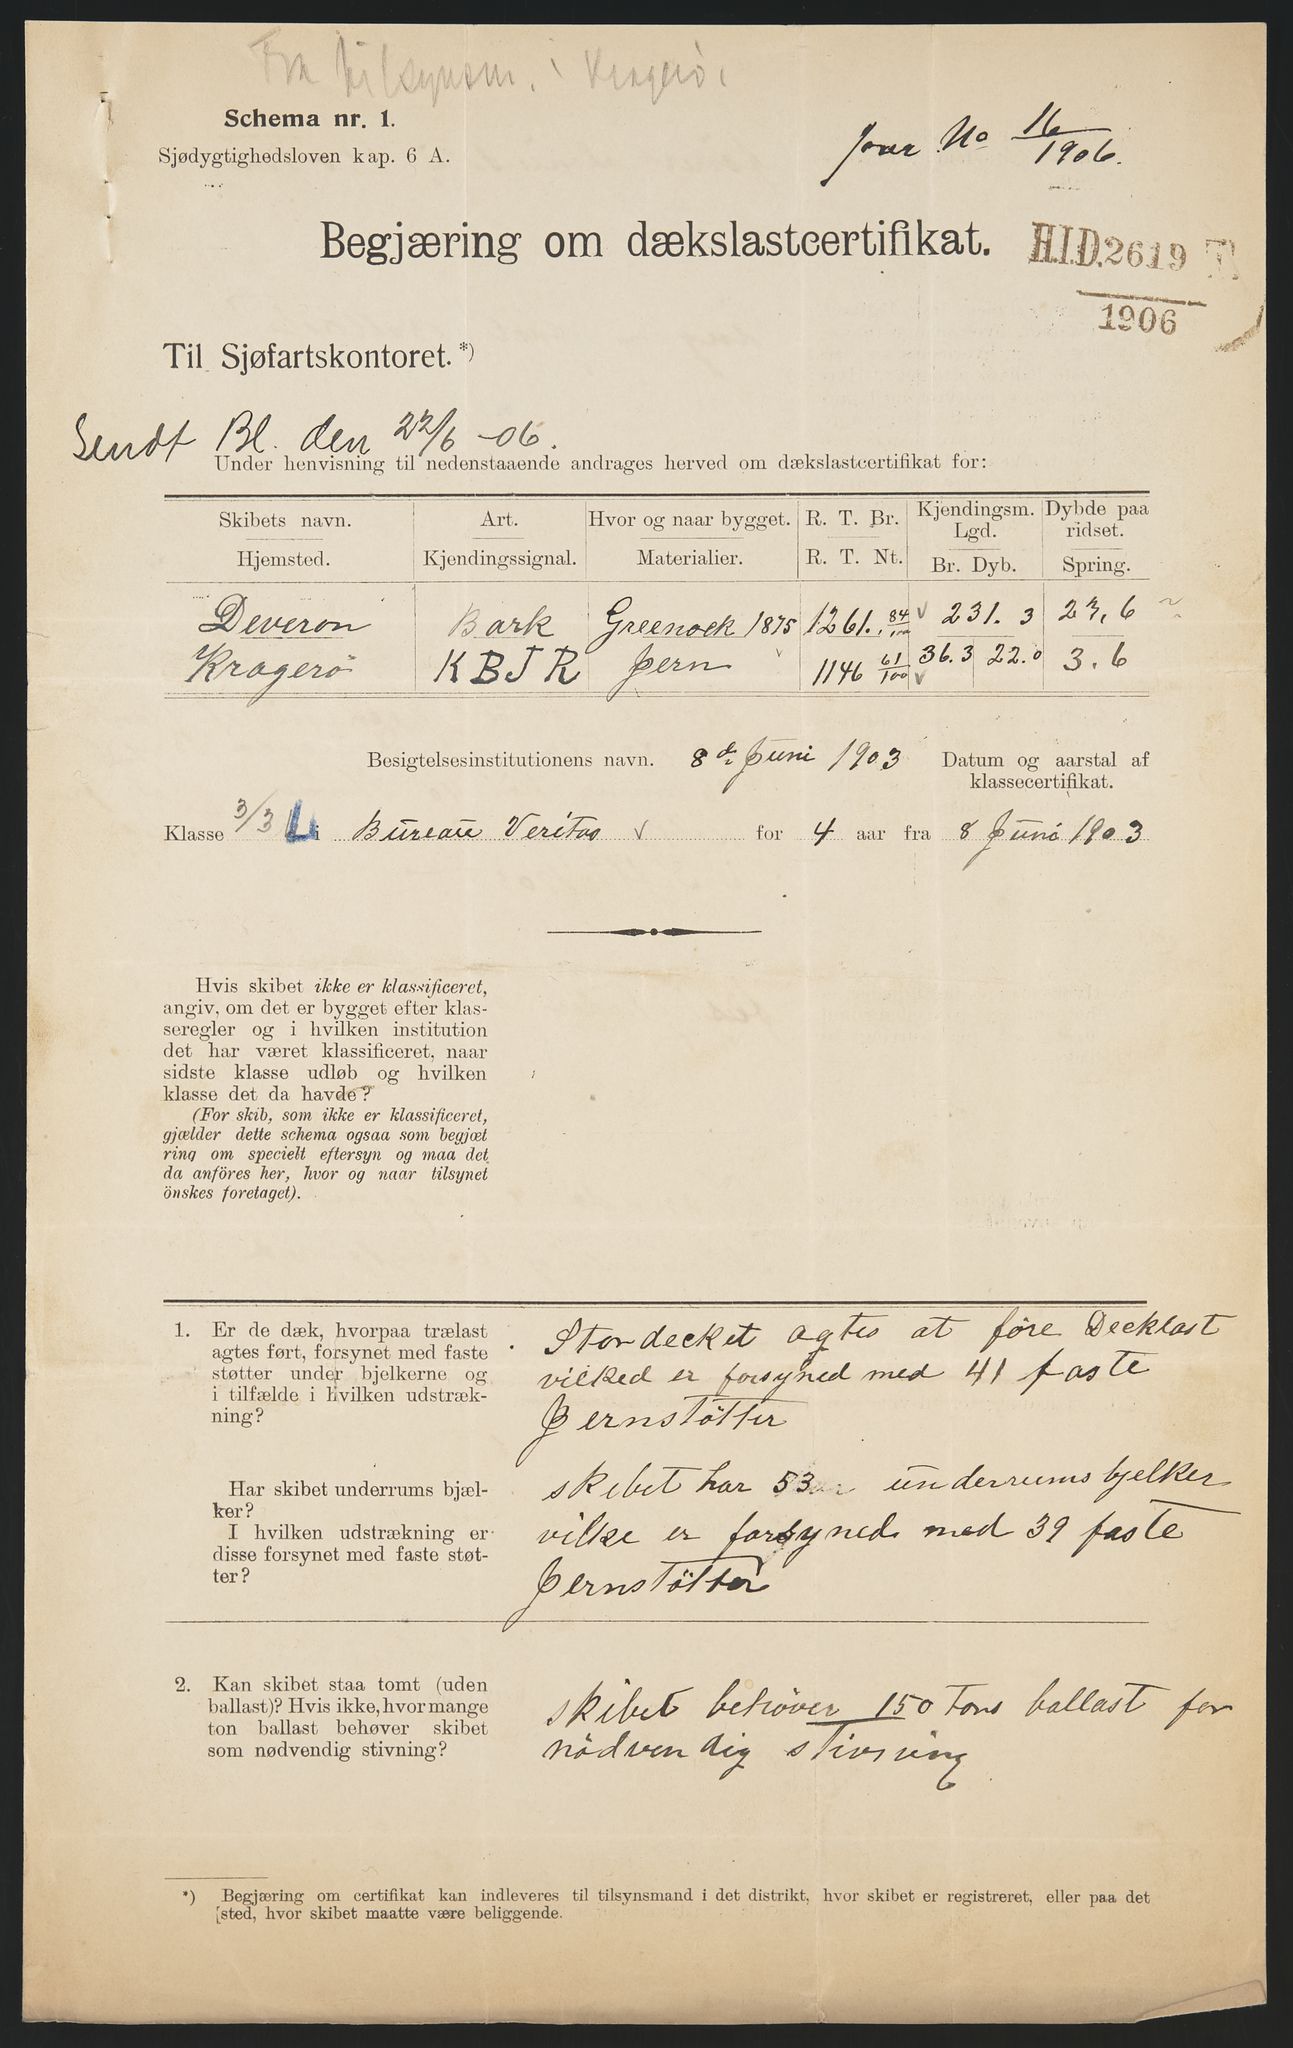 Fra tilsynsm. i Kragerø.
Schema nr. 1.
Sjødygtighedsloven kap. 6 A.
Jour No 16/1906.
Begjæring om dækslastcertifikat.
H.I.D. 2619
1906
Til Sjøfartskontoret.*)
Sendt Bl. den 22/6 -06.
Under henvisning til nedenstaaende andrages herved om dækslastcertifikat for:
Skibets navn. Art. Hvor og naar bygget. R. T. Br. Kjendingsm. Lgd. Dybde paa ridset.
Hjemsted. Kjendingssignal. Materialier. R. T. Nt. Br. Dyb. Spring.
Deveron Bark Greenock 1875 1261. 84/100 √ 231. 3 23. 6
Kragerö K B J R Jern 1146 61/100 √ 36. 3 22. 0 3. 6
Besigtelsesinstitutionens navn. 8de Juni 1903 Datum og aarstal af
klassecertifikat.
Klasse 3/3 L i Bureau Veritas √ for 4 aar fra 8 Juni 1903
Hvis skibet ikke er klassificeret,
angiv, om det er bygget efter klas-
seregler og i hvilken institution
det har været klassificeret, naar
sidste klasse udløb og hvilken
klasse det da havde?
(For skib, som ikke er klassificeret,
gjælder dette schema ogsaa som begjæt
ring om specielt eftersyn og maa det
da anföres her, hvor og naar tilsynet
önskes foretaget).
1. Er de dæk, hvorpaa trælast
agtes ført, forsynet med faste
støtter under bjelkerne og
i tilfælde i hvilken udstræk-
ning?
Stordecket agtes at føre Decklast
vilked er forsyned med 41 faste
Jernstötter
Har skibet underrums bjæl-
ker?
I hvilken udstrækning er
disse forsynet med faste støt-
ter?
skibet har 53 underrums bjelker
vilke er forsyned med 39 faste
Jernstötter
2. Kan skibet staa tomt (uden
ballast)? Hvis ikke, hvor mange
ton ballast behøver skibet
som nødvendig stivning?
skibet behøver 150 Tons ballast for
nödvendig stivning
*) Begjæring om certifikat kan indleveres til tilsynsmand i det distrikt, hvor skibet er registreret, eller paa det
[sted, hvor skibet maatte være beliggende.